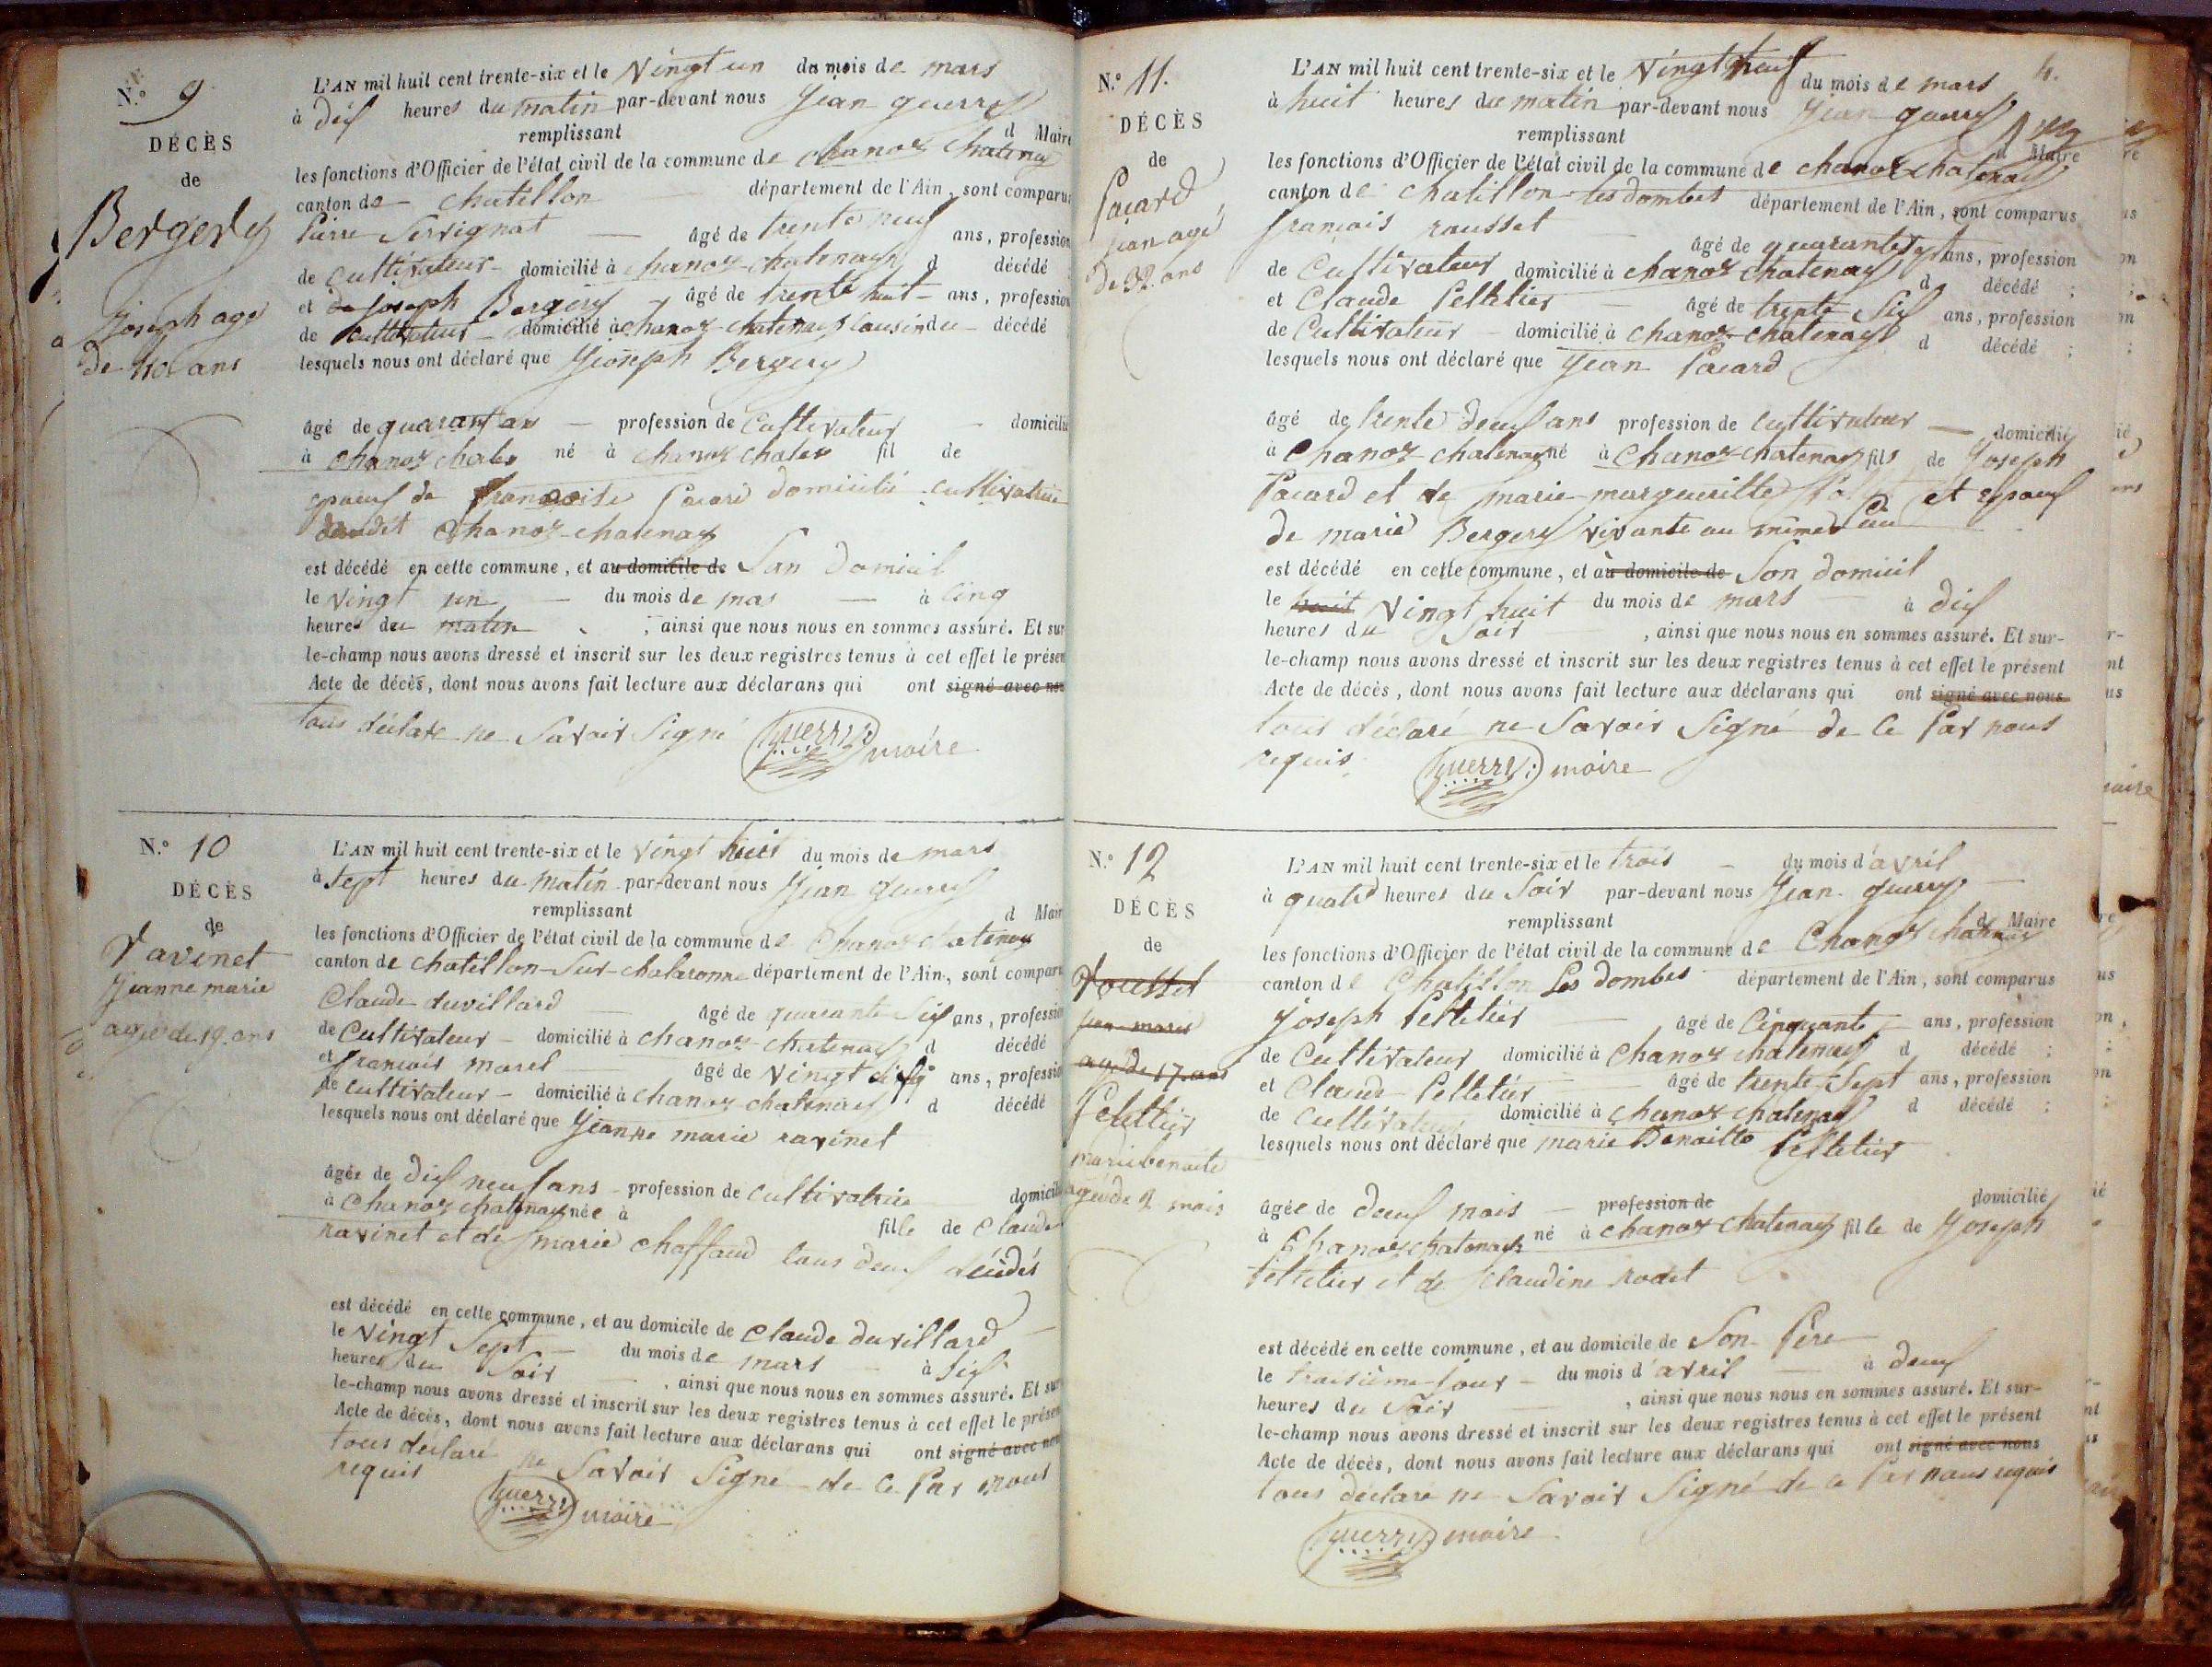 N.° 9
DÉCÈS
de
Bergery
Joseph agé
de 40 ans
L'AN mil huit cent trente-six et le Vingt un du mois de mars
à dix heures du matin par-devant nous Jean guerry
remplissant d Maire
les fonctions d'Officier de l'état civil de la commune de chanoz chatenay
canton de chatillon département de l'Ain, sont comparus
Pierre Servignat âgé de trente neuf ans, profession
de cultivateur domicilié à chanoz-chatenay d décédé
et de Joseph Bergery âgé de trente huit ans, profession
de cultivateur domicilié à chanoz-chatenay cousin du décédé
lesquels nous ont déclaré que Jioseph Bergery
âgé de quarant ans profession de Cultivateur domicilié
à chanoz chate né à chanoz chate fil de
epoux de francoise Pacard domicilié cultivatrice
dudit Chanoz-chatenay
est décédé en cette commune, et au domicile de San domicil
le vingt un du mois de mas à cinq
heures du matin, ainsi que nous nous en sommes assuré. Et sur
le-champ nous avons dressé et inscrit sur les deux registres tenus à cet effet le présen
Acte de décès, dont nous avons fait lecture aux déclarans qui ont signé avec nous
tous déclare ne Savoir Signé
Guerry maire
N.° 10
DÉCÈS
de
Ravinet
Jeanne marie
agée de 19. ans
L'AN mil huit cent trente-six et le vingt huit du mois de mars
à Sept heures du matin par-devant nous Jean guerry
remplissant d Mair
les fonctions d'Officier de l'état civil de la commune de Chanoz chatenay
canton de chatillon-Sur-chalaronne département de l'Ain, sont compar
Claude duvillard âgé de quarante Six ans, profession
de Cultivateur domicilié à chanoz-chatenay d décédé
et francois morel âgé de vingt cinq ans, profession
de cultivateur domicilié à chanoz chatenay d décédé
lesquels nous ont déclaré que Jeanne marie ravinet
âgée de dix neuf ans profession de cultivatrice domicil
à Chanoz chatenay née à fille de Claude
ravinet et de marie chaffaud tous deux décédés
est décédé en cette commune, et au domicile de Claude duvillard
le vingt Sept du mois de mars à Six
heures du Soir, ainsi que nous nous en sommes assuré. Et sur
le-champ nous avons dressé et inscrit sur les deux registres tenus à cet effet le présen
Acte de décès, dont nous avons fait lecture aux déclarans qui ont signé avec nous
tous déclaré ne Savoir Signé de ce Par nous
requis
Guerry maire
4.
N.° 11.
DÉCÈS
de
Pacard
jean agé
de 32. ans
L'AN mil huit cent trente-six et le Vingt neuf du mois de mars
à huit heures du matin par-devant nous Jean guerry
remplissant d Maire
les fonctions d'Officier de l'état civil de la commune de chanoz chatenay
canton de chatillon les dombes département de l'Ain, sont comparus
françois rousset âgé de quarante Sept ans, profession
de Cultivateur domicilié à chanoz chatenay d décédé ;
et Claude Pelletier âgé de trente Six ans, profession
de Cultivateur domicilié à chanoz-chatenay d décédé ;
lesquels nous ont déclaré que Jean Pacard
âgé de trente deux ans profession de cultivateur domicilié
à Chanoz chatenay né à Chanoz chatenay fils de Joseph
Pacard et de marie margueritte et epoux
de marie Bergery vivante au même lieu
est décédé en cette commune, et au domicile de Son domicil
le huit Vingt huit du mois de mars à dix
heures du Soir, ainsi que nous nous en sommes assuré. Et sur-
le-champ nous avons dressé et inscrit sur les deux registres tenus à cet effet le présent
Acte de décès, dont nous avons fait lecture aux déclarans qui ont signé avec nous
tous déclaré ne Savoir Signé de ce Par nous
requis
Guerry maire
N.° 12
DÉCÈS
de
Rousset
jean-marie
agé de 17. ans
Pelettier
marie benoite
agée de 2 mois
L'AN mil huit cent trente-six et le trois du mois d'avril
à quatre heures du Soir par-devant nous Jean guerry
remplissant d Maire
les fonctions d'Officier de l'état civil de la commune de Chanoz chatenay
canton de Chatillon Les dombes département de l'Ain, sont comparus
Joseph Pelletier âgé de Cinquante ans, profession
de Cultivateur domicilié à chanoz chatenay d décédé ;
et Claude Pelletier âgé de trente-Sept ans, profession
de Cultivateur domicilié à chanoz chatenay d décédé ;
lesquels nous ont déclaré que marie Benoitte Pelletier
âgée de deux mois profession de domicilié
à Chanoz chatenay né à chanoz chatenay fille de Joseph
Pelletier et de Claudine rodet
est décédé en cette commune, et au domicile de Son Père
le troisieme jour du mois d'avril à deux
heures du Soir, ainsi que nous nous en sommes assuré. Et sur-
le-champ nous avons dressé et inscrit sur les deux registres tenus à cet effet le présent
Acte de décès, dont nous avons fait lecture aux déclarans qui ont signé avec nous
tous déclare ne Savoir Signé de ce Par nous requis
Guerry maire